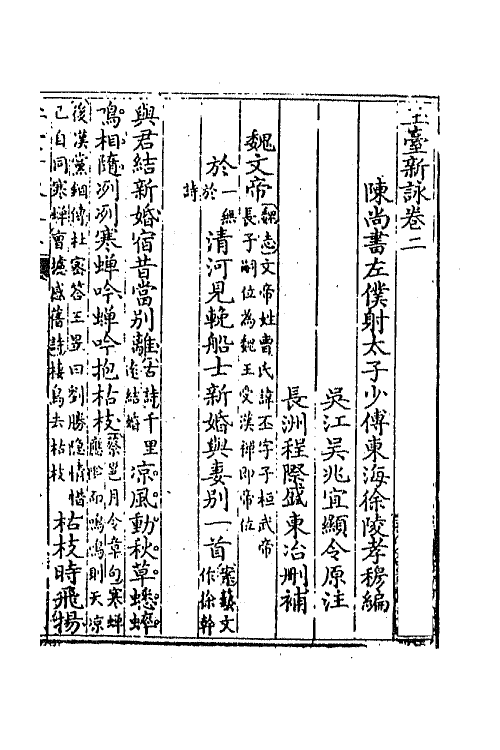 玉臺新詠卷二
陳尚書左僕射太子少傅東海徐陵孝穆編
吳江吳兆宜顯令原注
長洲程際盛東冶刪補
魏文帝魏志文帝姓曹氏諱丕字子桓武帝
長子嗣位為魏王受漢禪即帝位
於一無
於清河見輓船士新婚與妻別一首案藝文
作徐幹
詩
與君結新婚宿昔當別離古詩千里
遠結婚涼風動秋草蟋蟀
鳴相隨冽冽寒蟬吟蟬吟抱枯枝蔡邕月令章句寒蟬
應陰而鳴鳴則天涼
後漢黨錮傳杜密答王昱曰劉勝隱情惜
己自同寒蟬曹攄感舊詩棲鳥去枯枝枯枝時飛揚